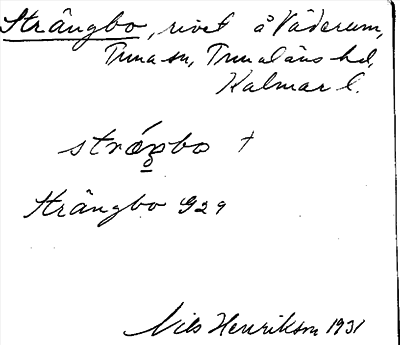 Strångbo, rivet å Väderum,
Tuna sn, Tunaläns hd,
Kalmar l.
stræ̨ŋbo †
Strångbo G29
Nils Henrikson 1931